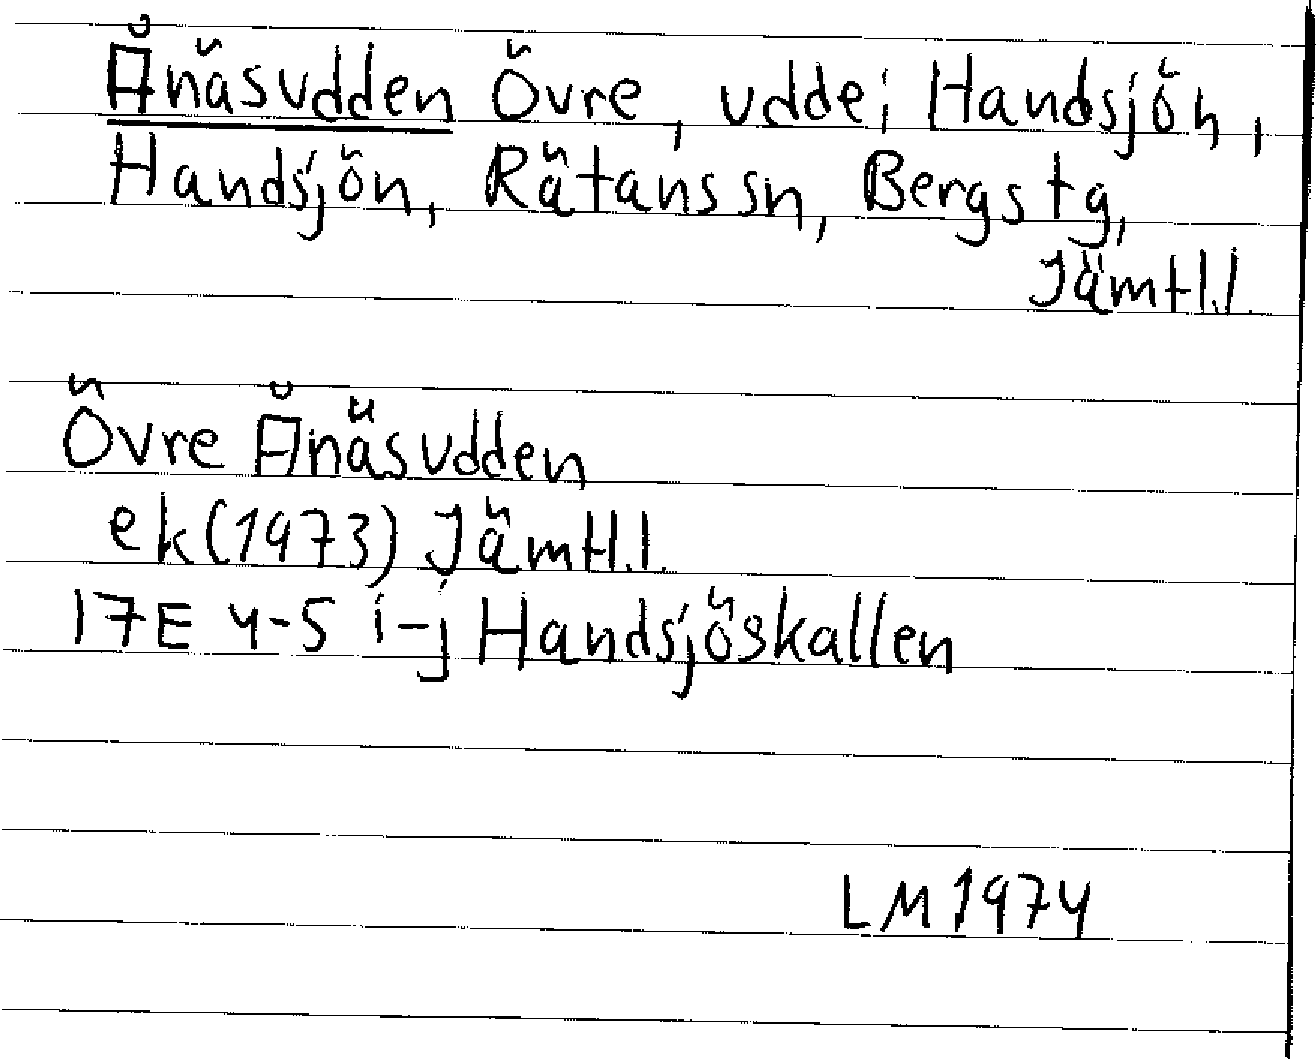 Ånäsudden Övre, udde i Handsjön,
Handsjön, Rätans sn, Bergs tg,
Jämtl.l.
Övre Ånäsudden
ek(1973) Jämtl.l.
17E 4-5 i-j Handsjöskallen
LM 1974